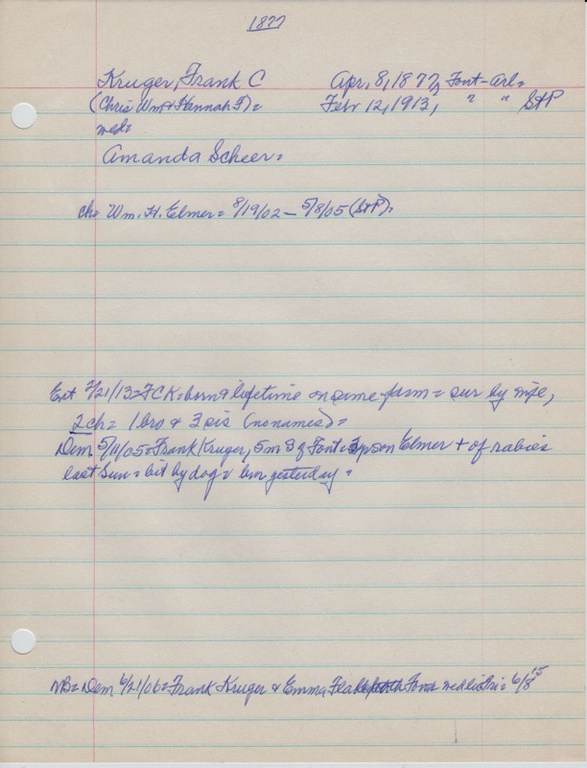 1877
Kruger, Frank C Apr, 8, 1877, Font-Arl=
(Chris Wm & Hannah F)= Febr 12, 1913, " " St P
med=
Amanda Scheer=
ch= Wm. H. Elmer= 8/19/02 - 5/8/05 (St P)=
Ext 2/21/13= FCK= born & lifetime on same farm= sur by wife,
2 ch= 1 bro & 3 sis (no names)=
Dem 5/11/05= Frank Kruger, 5 m S of Font= son Elmer + of rabies
last Sun= bit by dog= bur yesterday=
NB= Dem 6/21/06= Frank Kruger & Emma Font med= 6/8 15